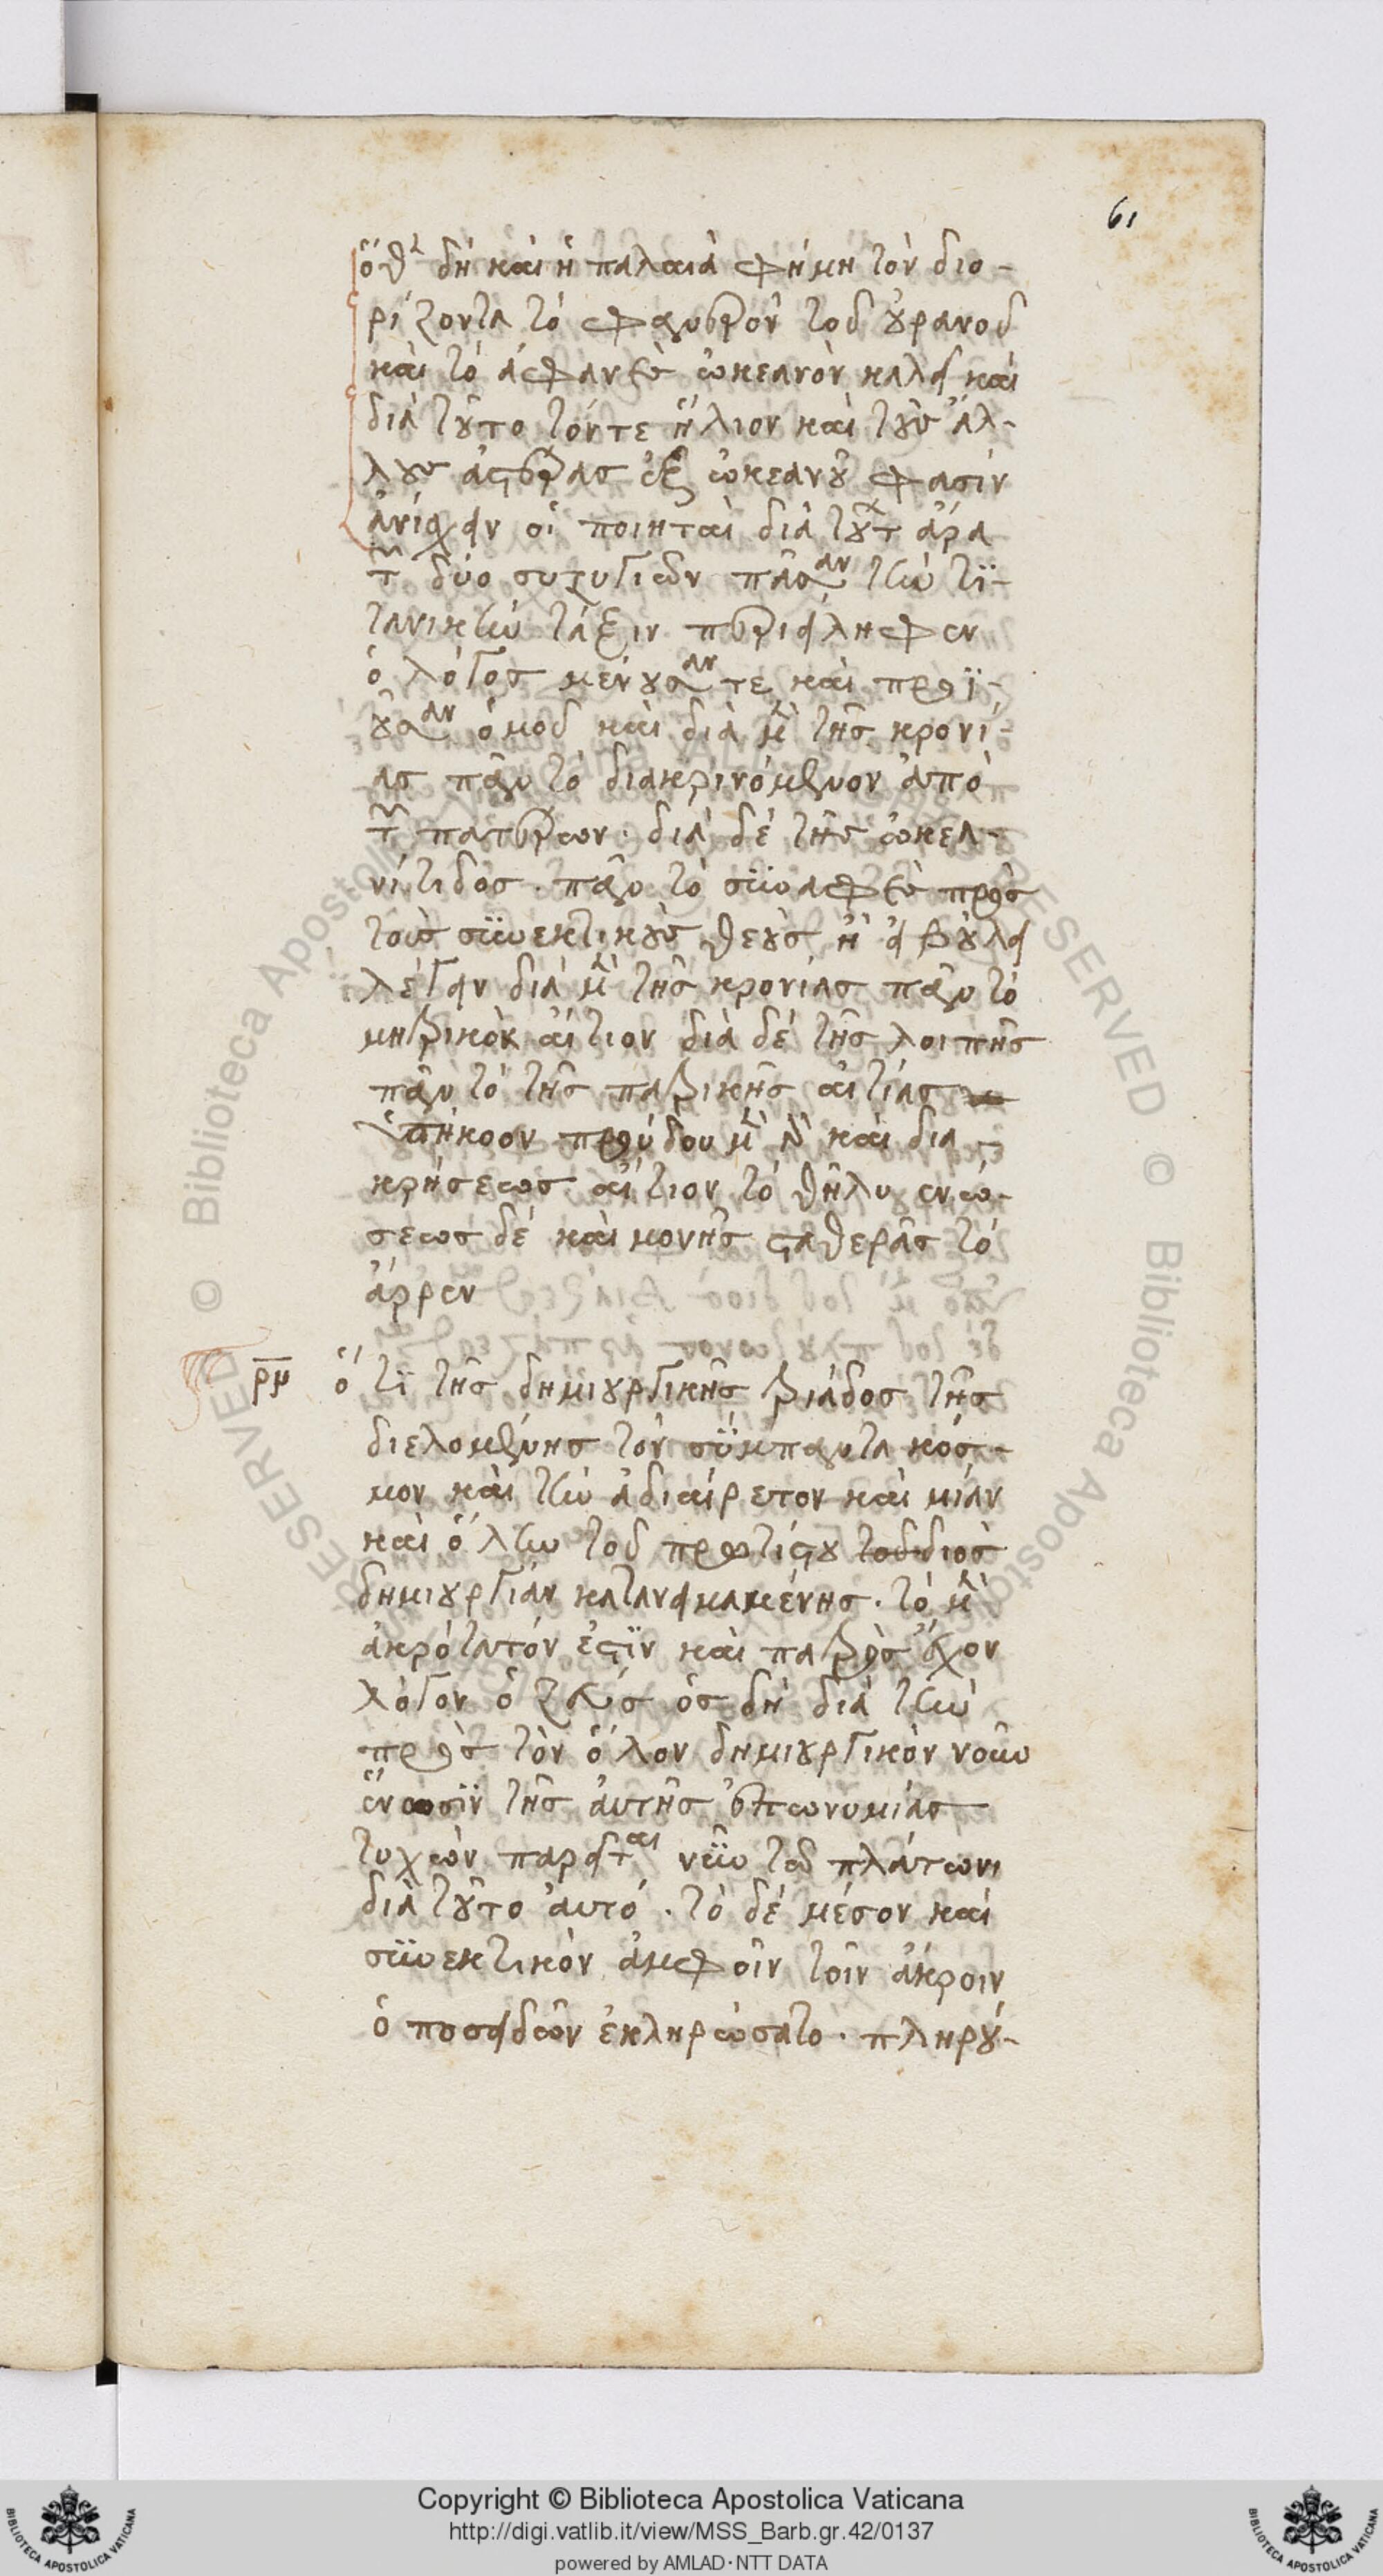 61
ὅθεν δὴ καὶ ἡ παλαιὰ φήμη τὸν διο-
ρίζοντα τὸ φανερὸν τοῦ οὐρανοῦ
καὶ τὸ ἀφανὲς ὠκεανὸν καλεῖ καὶ
διὰ τοῦτο τόν τε ἥλιον καὶ τοὺς ἄλ-
λους ἀστέρας ἐξ ὠκεανοῦ φασὶν
ἀνίσχειν οἱ ποιηταὶ διὰ τούτων ἄρα
τῶν δύο συζυγιῶν πᾶσαν τὴν τϊ-
τανικὴν τάξιν περιείληφεν
ὁ λόγος μένουσάν τε καὶ προϊ-
οῦσαν ὁμοῦ καὶ διὰ μὲν τῆς κρονί-
ας πᾶν τὸ διακρινόμενον ἀπὸ
τῶν πατέρων. διὰ δὲ τῆς ὠκεα-
νίτιδος. πᾶν τὸ συναφθὲν πρὸς
τοὺς συνεκτικοὺς θεοὺς ἢ εἰ βούλει
λέγειν διὰ μὲν τῆς κρονίας πᾶν τὸ
μητρικὸν αἴτιον διὰ δὲ τῆς λοιπῆς
πᾶν τὸ τῆς πατρικῆς αἰτίας
ὑπήκοον προόδου μὲν γὰρ καὶ δια-
κρήσεως αἴτιον τὸ θῆλυ ἑνώ-
σεως δὲ καὶ μονῆς σταθερᾶς τὸ
ἄρρεν
ρμ ὅτϊ τῆς δημιουργικῆς τριάδος τῆς
διελομένης τὸν σύμπαντα κόσ-
μον καὶ τὴν ἀδιαίρετον καὶ μίαν
καὶ ὅλην τοῦ πρωτίστου τοῦ διὸς
δημιουργίαν κατανειμαμένης. τὸ μὲν
ἀκρότατόν ἐστϊν καὶ πατρὸς ἔχον
λόγον ὁ ζεύς ὃς δὴ διὰ τὴν
πρὸς τὸν ὅλον δημιουργικὸν νοῦν
ἕνωσϊν τῆς αὐτῆς ἐπωνυμίας
τυχὼν παρεῖται νῦν τῷ πλάτωνι
διὰ τοῦτο αὐτό. τὸ δὲ μέσον καὶ
συνεκτικὸν ἀμφοῖν τοῖν ἄκροιν
ὁ ποσειδῶν ἐκληρώσατο. πληρού-
Copyright © Biblioteca Apostolica Vaticana
http://digi.vatlib.it/view/MSS_Barb.gr.42/0137
powered by AMLAD·NTT DATA